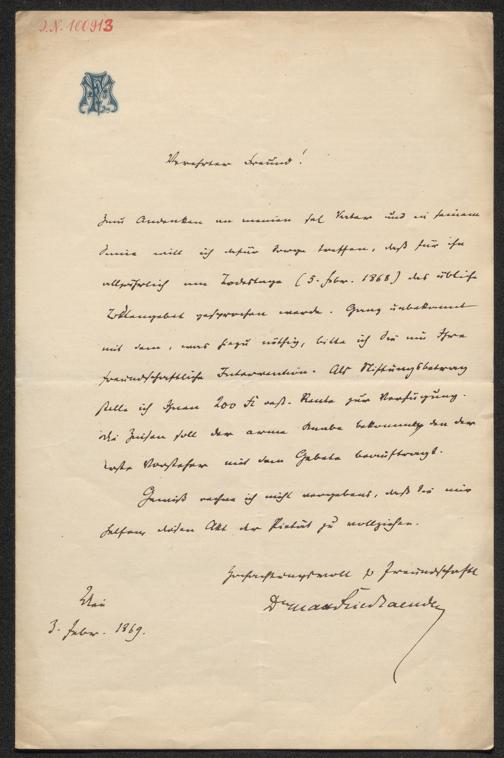 J.N. 100913
Verehrter Freund!
Zum Andenken an meinen sel Vater und in seinem
Sinne will ich dafür Sorge treffen, daß für ihn
alljährlich am Todestage (5. Febr. 1868) das übliche
Todtengebet gesprochen werde. Ganz unbekannt
mit dem, was hiezu nöthig, bitte ich Sie um Ihre
freundschaftliche Intervention. Als Stiftungsbetrag
stelle ich Ihnen 200 Fl Rente zur Verfügung.
Die Zinsen soll der arme Knabe bekommen, den der
erste Vorsteher mit dem Gebete beauftragt.
Gewiß rechne ich nicht vergebens, daß Sie mir
helfen, diesen Akt der Pietät zu vollziehen.
Hochachtungsvoll & freundschaftl
Dr Max Friedlaender
3. Febr. 1869.